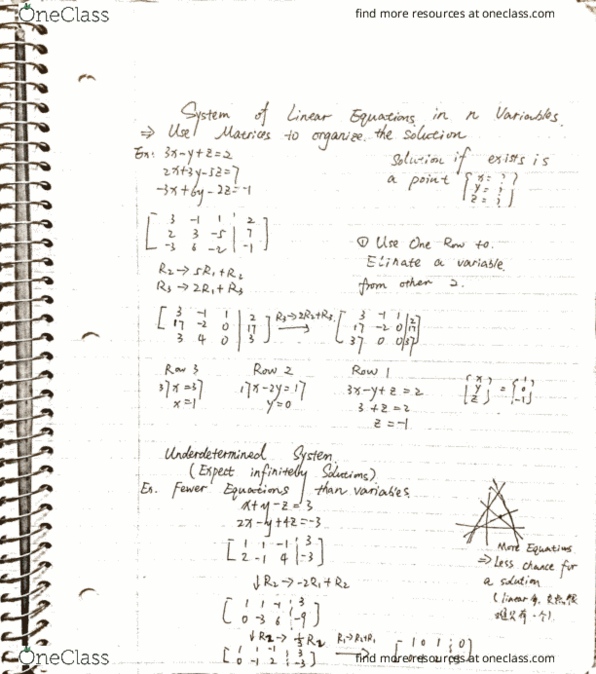 OneClass
find more resources at oneclass.com
System of Linear Equations in n Variables.
⇒ Use Matrices to organize the solution
Ex: 3x-y+z=2
2x+3y-5z=7
-3x+6y-2z=-1
Solution if exists is
a point { x=? y=? z=? }
[ 3 -1 1 | 2
2 3 -5 | 7
-3 6 -2 | -1 ]
① Use One Row to
Elinate a variable
from other 2.
R₂→5R₁+R₂
R₃→2R₁+R₃
[ 3 -1 1 | 2
17 -2 0 | 17
3 4 0 | 3 ] R₃→2R₂+R₃ → [ 3 -1 1 | 2
17 -2 0 | 17
37 0 0 | 37 ]
Row 3 Row 2 Row 1
37x=37 17x-2y=17 3x-y+z=2
x=1 y=0 3+z=2
z=-1
{ x y z } = { 1 0 -1 }
Underdetermined System
(Expect infinitely Solutions)
Ex. Fewer Equations than variables.
x+y-z=3
2x-y+4z=-3
[ 1 1 -1 | 3
2 -1 4 | -3 ]
↓R₂→-2R₁+R₂
[ 1 1 -1 | 3
0 -3 6 | -9 ]
↓R₂→⅓R₂
[ 1 1 -1 | 3
0 -1 2 | -3 ] R₁→R₂+R₁ →
More Equations
⇒ Less chance for
a solution
(linear
OneClass
find more resources at oneclass.com